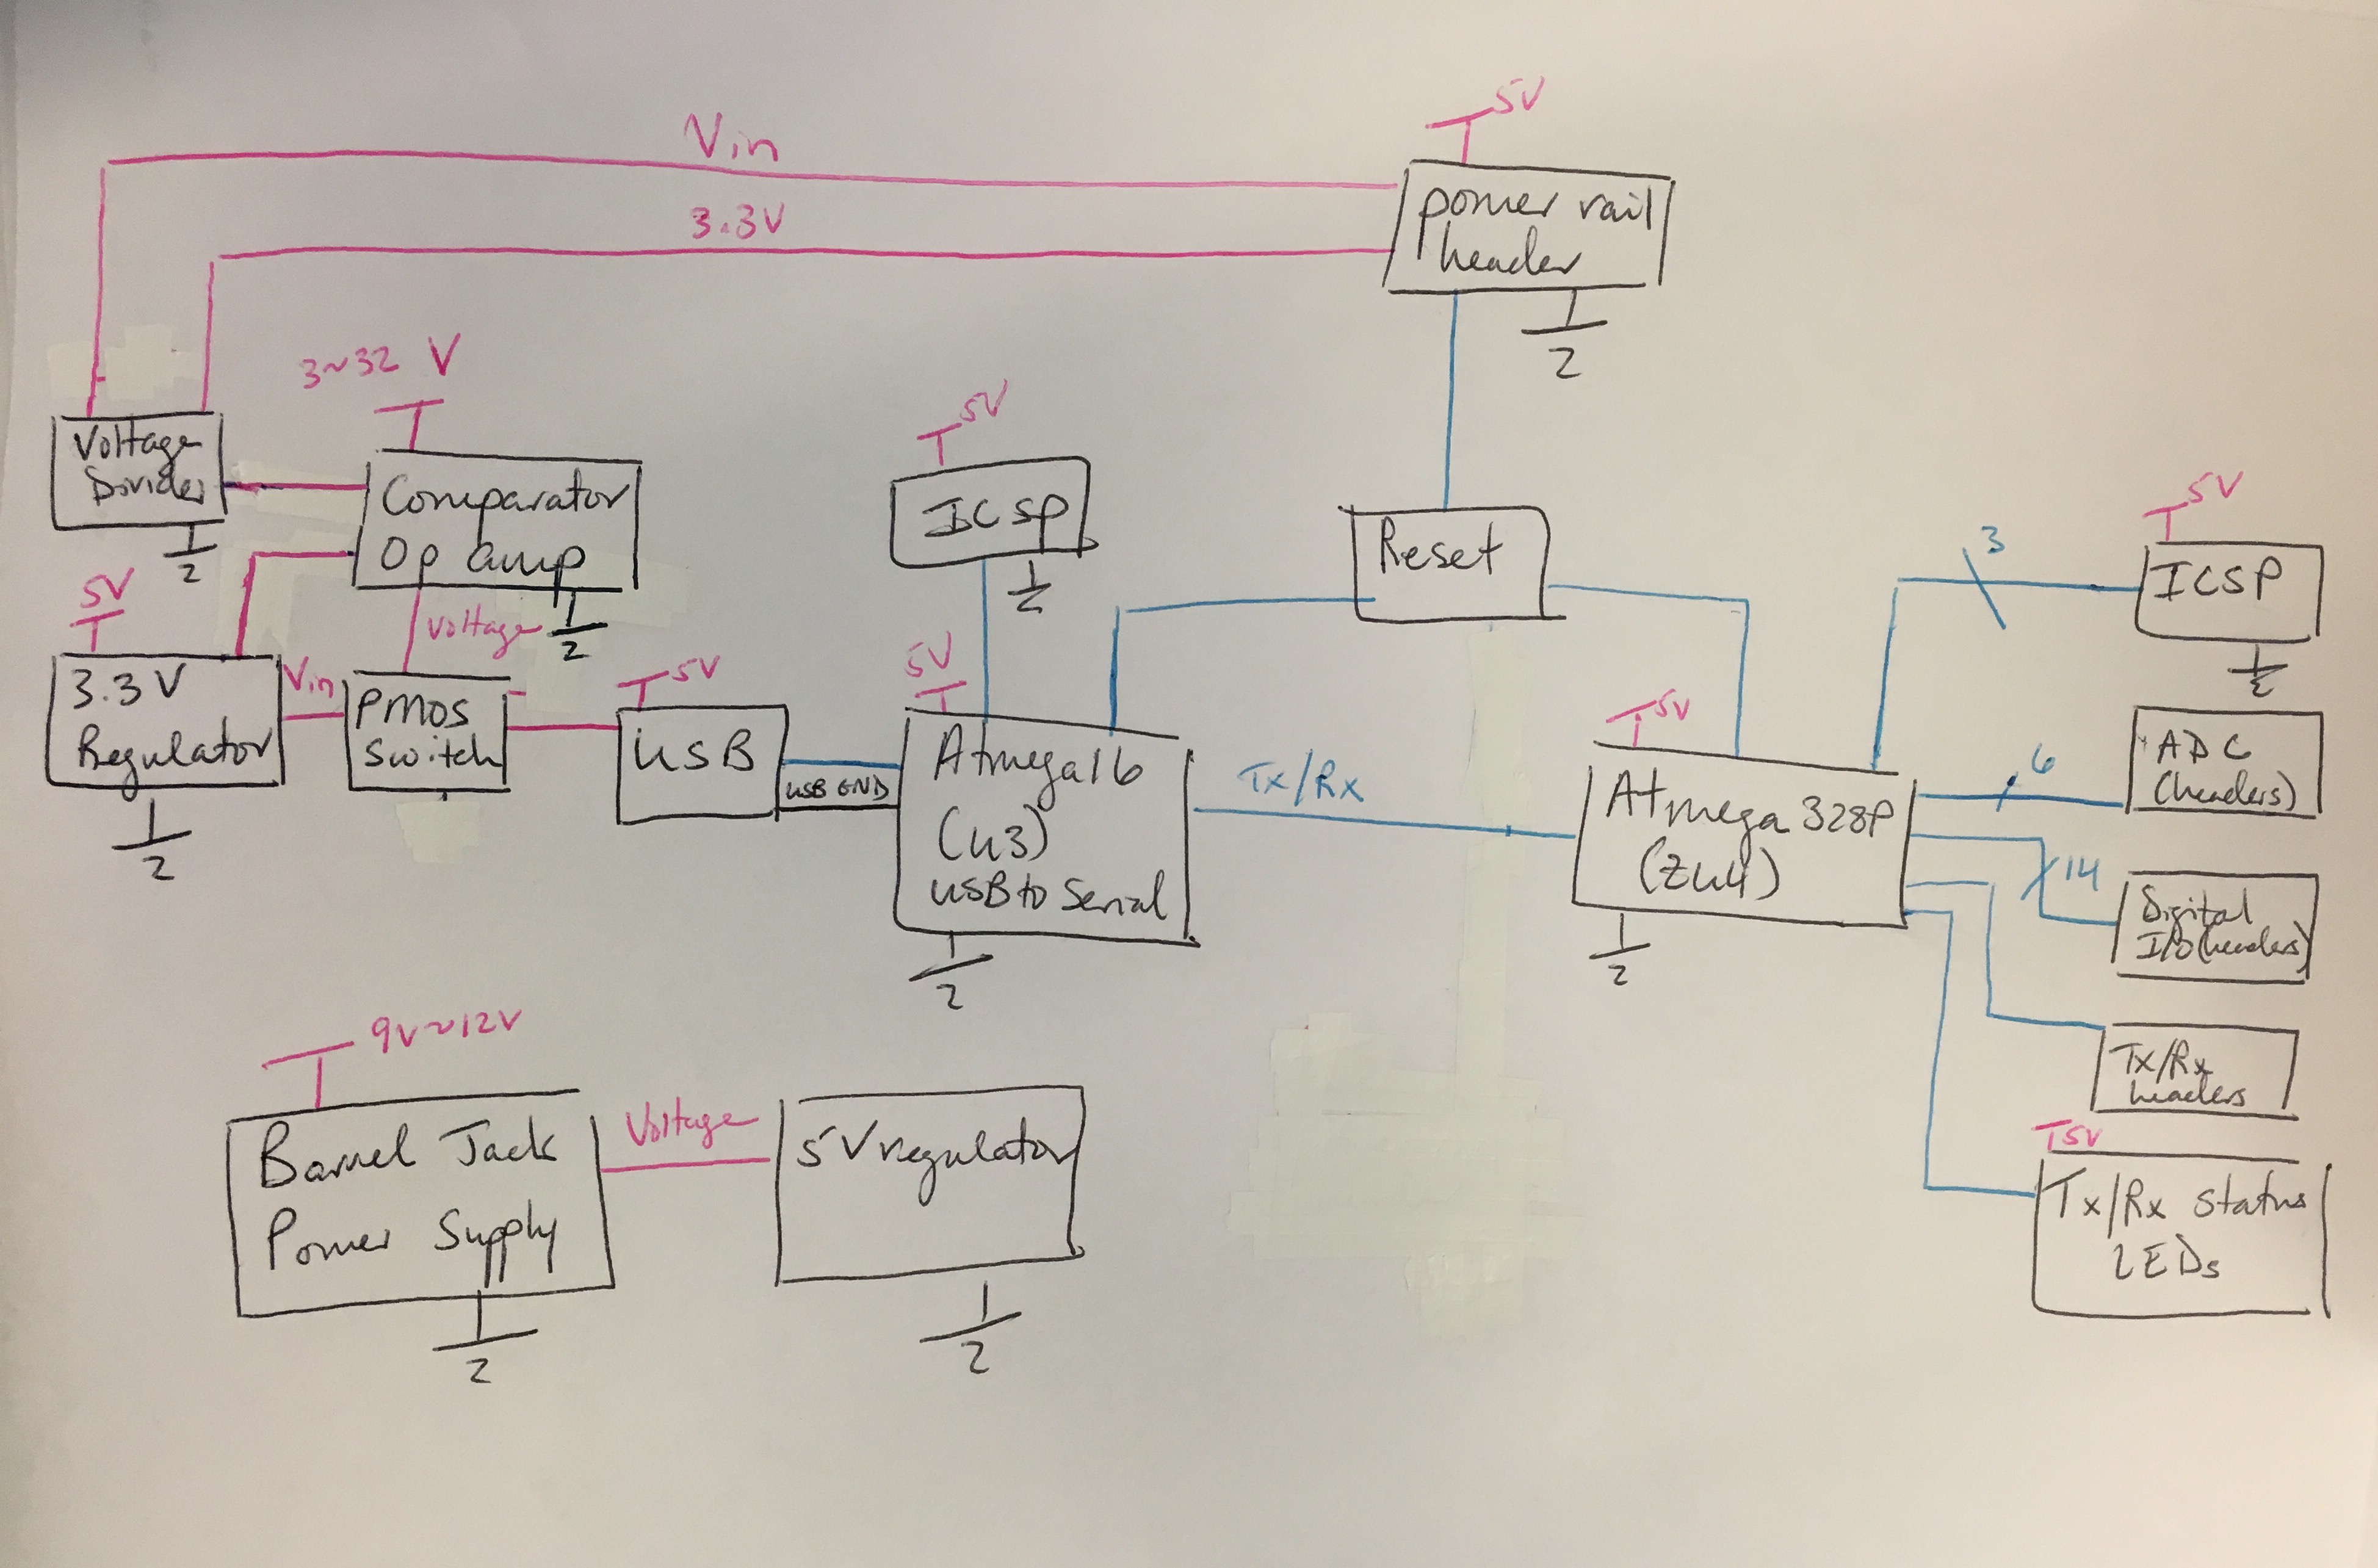 5V
Vin
power rail
header
3.3V
2
3~32 V
5V
Voltage
Divider
2
Comparator
Op amp
2
ICSP
Reset
5V
3
ICSP
5V
Voltage
3.3V
Regulator
2
Vin
PMOS
Switch
5V
USB
USB GND
5V
Atmega16
(U3)
USB to Serial
2
Tx/Rx
5V
Atmega 328P
(ZU4)
2
6
ADC
(headers)
14
Digital
I/O (headers)
Tx/Rx
headers
5V
Tx/Rx Status
LEDs
9V~12V
Barrel Jack
Power Supply
2
Voltage
5V regulator
2